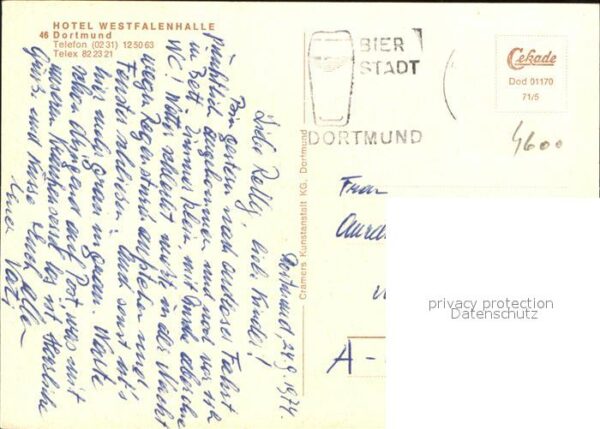 HOTEL WESTFALENHALLE
46 Dortmund
Telefon (02 31) 12 50 63
Telex 82 23 21
BIER
STADT
DORTMUND
Cekade
Dod 01170
71/5
4600
Cramers Kunstanstalt KG, Dortmund
Dortmund, 24.9.1974
Liebe Kelly, liebe Kinder!
Bin gestern nach endloser Fahrt
pünktlich angekommen und
in Bett. Zimmer klein, mit Dusche
WC! Wetter schlecht, mußte in der Nacht
wegen Regensturm aufstehen und
Fenster schließen. Und sonst ist's
hier
schon dringend auf Post, was mit
unserem los ist. Herzliche
Grüße und Küsse Euch allen
Euer Vati
Frau
A-
privacy protection
Datenschutz